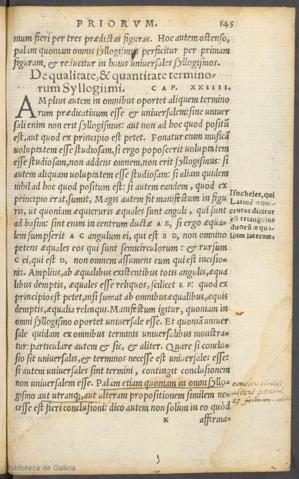 PRIORVM. 145
mum fieri per tres prædictas figuras. Hoc autem ostenso,
palàm quoniam omnis syllogismus perficitur per primam
figuram, & reducitur in huius vniuersales syllogismos.
De qualitate, & quantitate termino-
rum Syllogismi. CAP. XXIIII.
AMplius autem in omnibus oportet aliquem termino
rum prædicatiuum esse & vniuersalem: sine vniuer
sali enim non erit syllogismus: aut non ad hoc quod positũ
est, aut quod ex principio est petet. Ponatur enim musicã
voluptatem esse studiosam, si ergo poposcerit voluptatem
esse studiosam, non addens omnem, non erit syllogismus: si
autem aliquam voluptatem esse studiosam: si aliam quidem
nihil ad hoc quod positum est: si autem eandem, quod ex
principio erat, sumit. Magis autem fit manifestum in figu
ris, vt quoniam æquicruris æquales sunt anguli, qui sunt
ad basim: sint enim in centrum ductæ A E, si ergo æqua-
lem sumpserit A C angulum ei, qui est B D, non omnino
petens æquales eos qui sunt semicirculorum: & rursum
C ei, qui est D, non omnem assumens eum qui est incisio-
nis. Amplius, ab æqualibus existentibus totis angulis, æqua
libus demptis, æquales esse reliquos, scilicet E F: quod ex
principio est petet, nisi sumat ab omnibus æqualibus, æquis
demptis, æqualia relinqui. Manifestum igitur, quoniam in
omni syllogismo oportet vniuersale esse. Et quoniã vniuer
sale quidam ex omnibus terminis vniuersalibus monstra-
tur: particulare autem & sic, & aliter. Quare si conclu-
sio sit vniuersalis, & terminos necesse est vniuersales esse:
si autem vniuersales sint termini, contingit conclusionem
non vniuersalem esse. Palàm etiam quoniam in omni syllo-
gismo aut vtranq;, aut alteram propositionem similem ne-
cesse est fieri conclusioni: dico autem non solùm in eo quòd
K affirma-
Isocheles, qui
Latinè æqui
crurus dicitur
est triangulus
duorũ æqua-
lium laterum.
Biblioteca de Galicia